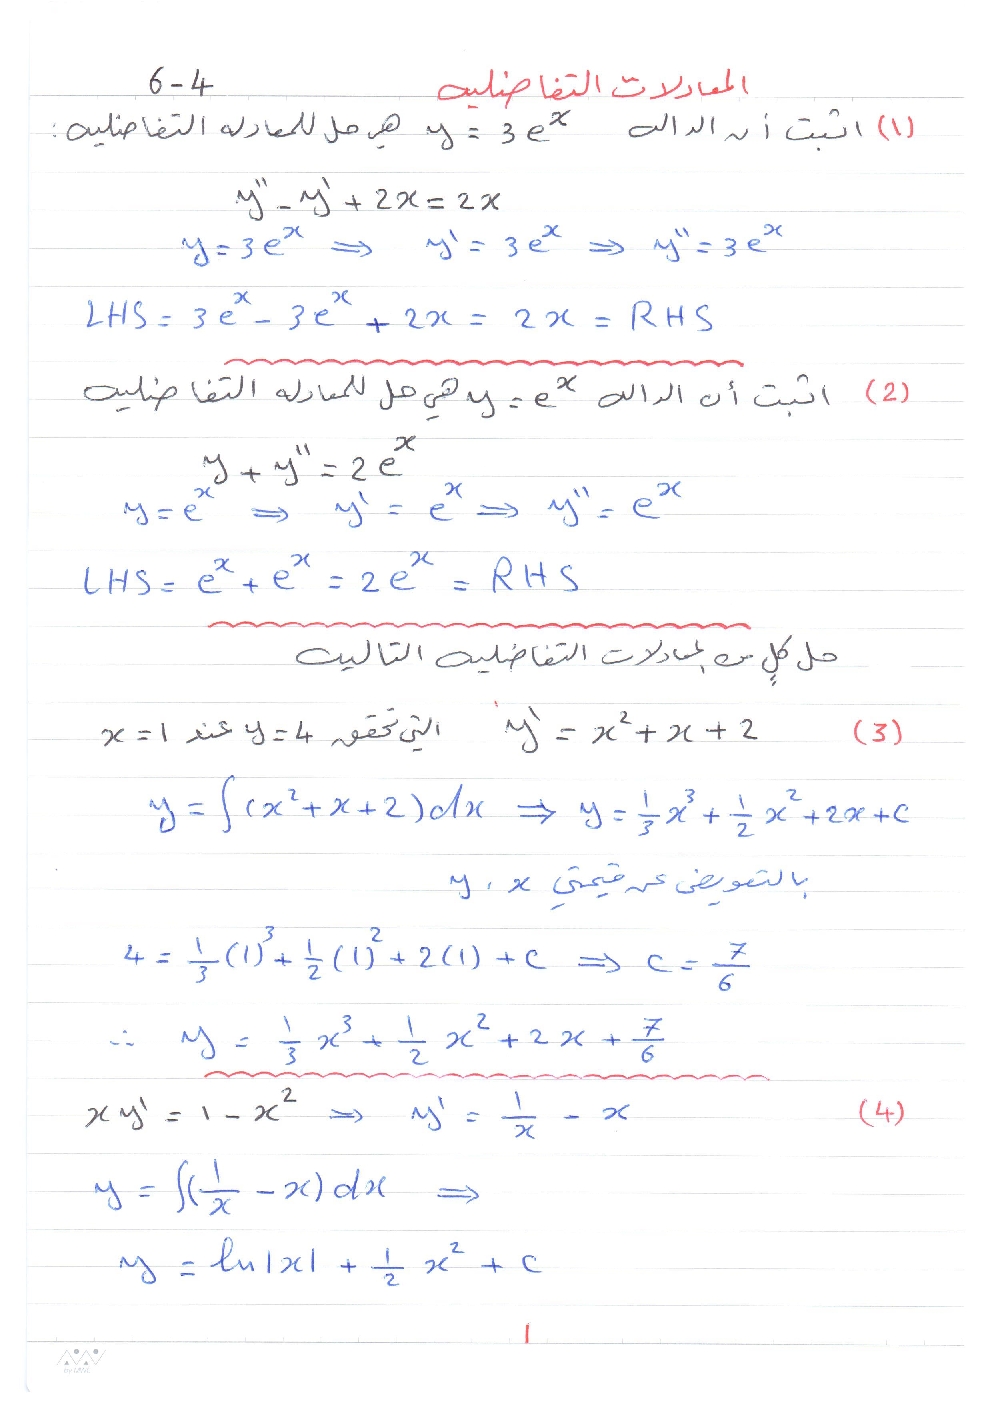 المعادلات التفاضليه 6-4
(1) اثبت أن الداله y = 3e^x هي حل للمعادله التفاضليه :
y'' - y' + 2x = 2x
y = 3e^x ⇒ y' = 3e^x ⇒ y'' = 3e^x
LHS = 3e^x - 3e^x + 2x = 2x = RHS
(2) اثبت أن الداله y = e^x هي حل للمعادله التفاضليه
y + y'' = 2e^x
y = e^x ⇒ y' = e^x ⇒ y'' = e^x
LHS = e^x + e^x = 2e^x = RHS
حل كلٍ من المعادلات التفاضليه التاليه
(3) y' = x² + x + 2 التي تحقق y = 4 عند x = 1
y = ∫(x² + x + 2)dx ⇒ y = 1/3 x³ + 1/2 x² + 2x + c
بالتعويض عن قيمتي x ، y
4 = 1/3 (1)³ + 1/2 (1)² + 2(1) + c ⇒ c = 7/6
∴ y = 1/3 x³ + 1/2 x² + 2x + 7/6
(4) xy' = 1 - x² ⇒ y' = 1/x - x
y = ∫(1/x - x)dx ⇒
y = ln|x| + 1/2 x² + c
1
by MWC